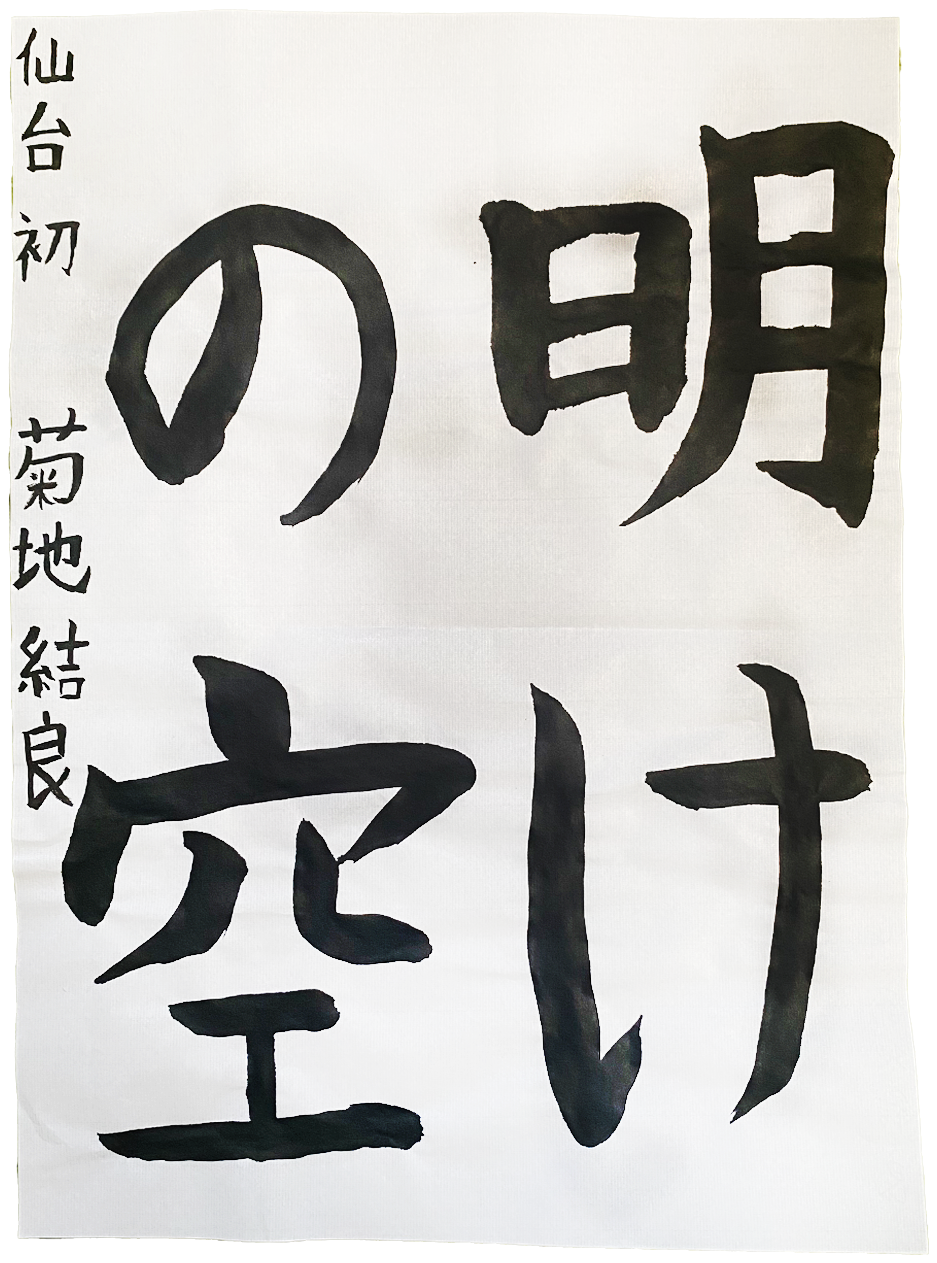 明け
の空
仙台 初 菊地 結良